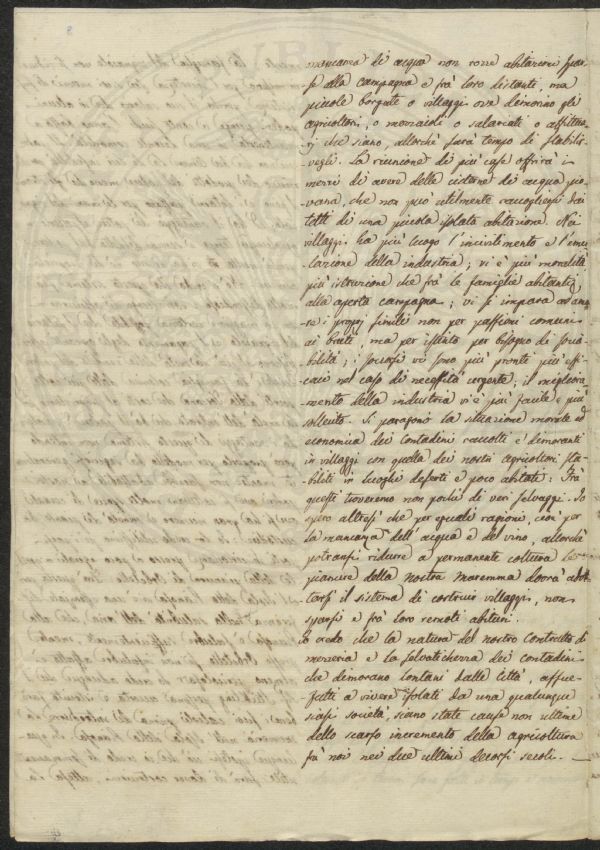 mancanza di acqua non vorrei abitazioni spar-
se alla campagna e frà loro distanti, ma
piccole borgate o villaggi ove dimorino gli
agricoltori, o mezzaioli o salariati o affittua-
rj che siano, allorchè sarà tempo di stabilir-
vegli. La riunione di più case offrirà i
mezzi di avere delle cisterne di acqua pio-
vana, che non può utilmente raccogliersi dai
tetti di una piccola isolata abitazione. Nei
villaggi ha più luogo l'incivilimento e l'emu-
lazione della industria; vi è più moralità
più istruzione che frà le famiglie abitanti
alla aperta campagna; vi si impara ad ama-
re i proprj simili non per passioni comuni
ai bruti, ma per istinto per bisogno di socia-
bilità; i soccorsi vi sono più pronti più effi-
caci nel caso di necessità urgente; il migliora-
mento della industria vi è più facile e più
sollecito. Si paragoni la situazione morale ed
economica dei Contadini raccolti e dimoranti
in villaggi con quella dei nostri agricoltori sta-
biliti in luoghi deserti e poco abitati: Frà
questi troveremo non pochi di veri selvaggi. Io
spero altresì che per eguali ragioni, cioè per
la mancanza dell'acqua e del vino, allorchè
potransi ridurre a permanente coltura le
pianure della nostra Maremma dovrà adot-
tarsi il sistema di costruir villaggi, non
sparsi e frà loro remoti abituri.
Io credo che la natura del nostro Contratto di
mezzeria e la selvatichezza dei contadini
che dimorano lontani dalle Città, assue-
fatti a vivere isolati da una qualunque
siasi società, siano state cause non ultime
dello scarso incremento della agricoltura
frà noi nei due ultimi decorsi secoli.